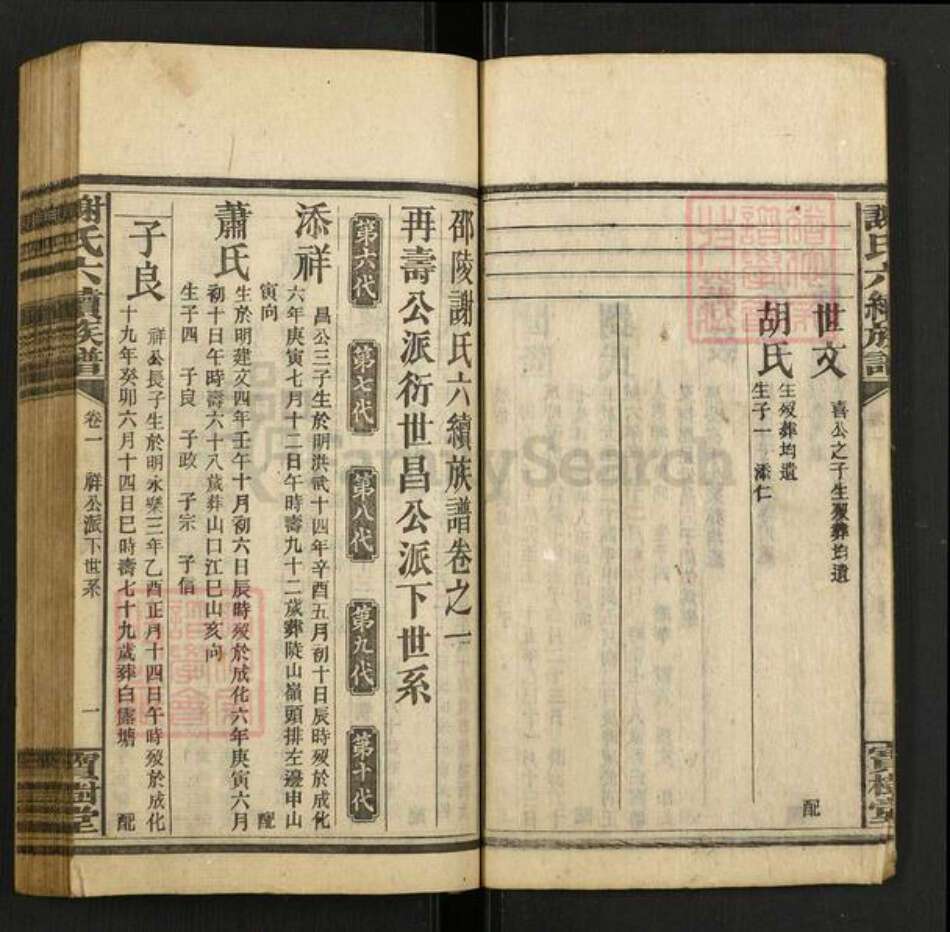 謝氏六續族譜
寶樹堂
世文
喜公之子生歿葬均遺
配
胡氏
生歿葬均遺
生子一 添仁
邵陵謝氏六續族譜卷之一
再壽公派衍世昌公派下世系
第六代 第七代 第八代 第九代 第十代
添祥
昌公三子生於明洪武十四年辛酉五月初十日辰時歿於成化
六年庚寅七月十二日午時壽九十二歲葬陡山嶺頭排左邊申山
寅向
配
蕭氏
生於明建文四年壬午十月初六日辰時歿於成化六年庚寅六月
初十日午時壽六十八歲葬山口江巳山亥向
生子四 子良 子政 子宗 子信
子良
祥公長子生於明永樂三年乙酉正月十四日午時歿於成化
十九年癸卯六月十四日巳時壽七十九歲葬白露塘
配
謝氏六續族譜
卷一
祥公派下世系
一
寶樹堂
FamilySearch